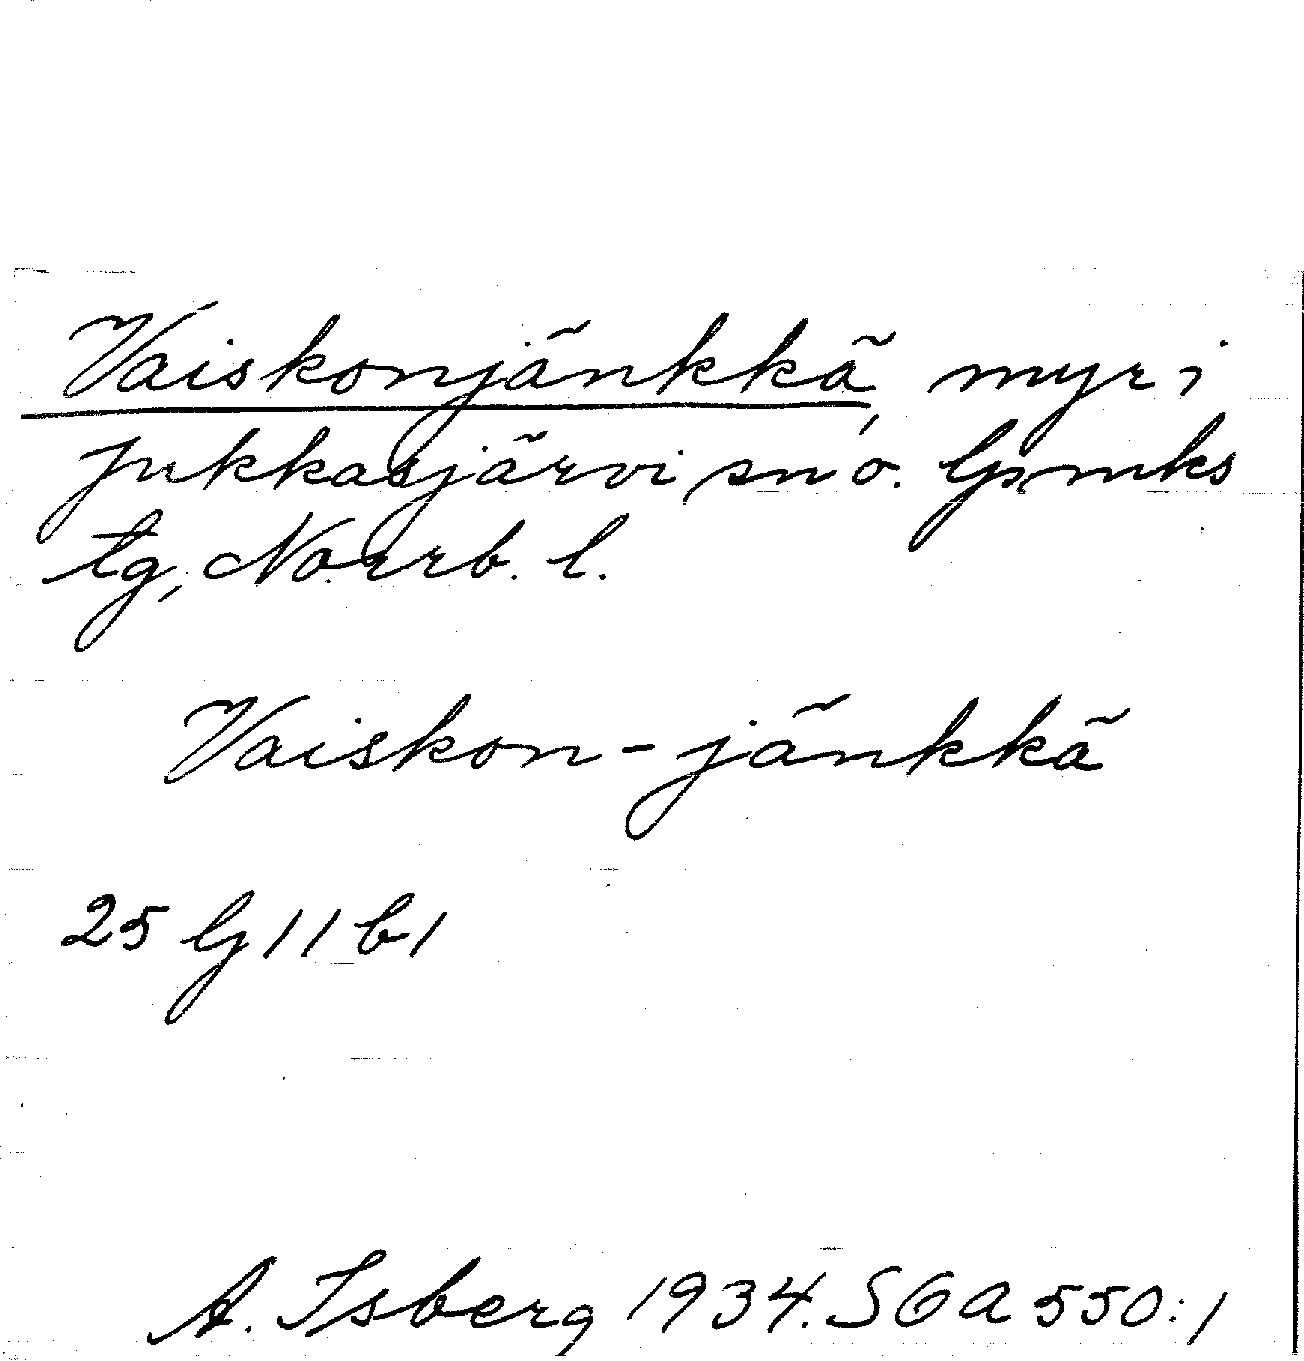 Vaiskonjänkkä, myr i
Jukkasjärvi sn o. lpmks
tg, Norrb. l.
Vaiskon-jänkkä
25 G 11 b 1
A. Isberg 1934. SGA 550:1